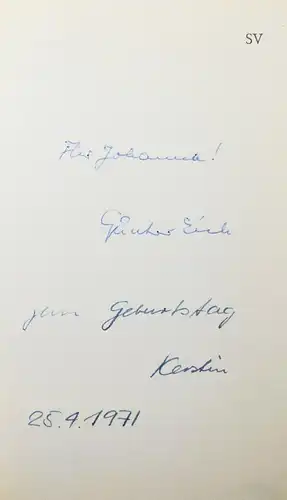 SV
Für Johanna!
Günter Eich
zum Geburtstag
Kerstin
25.4.1971